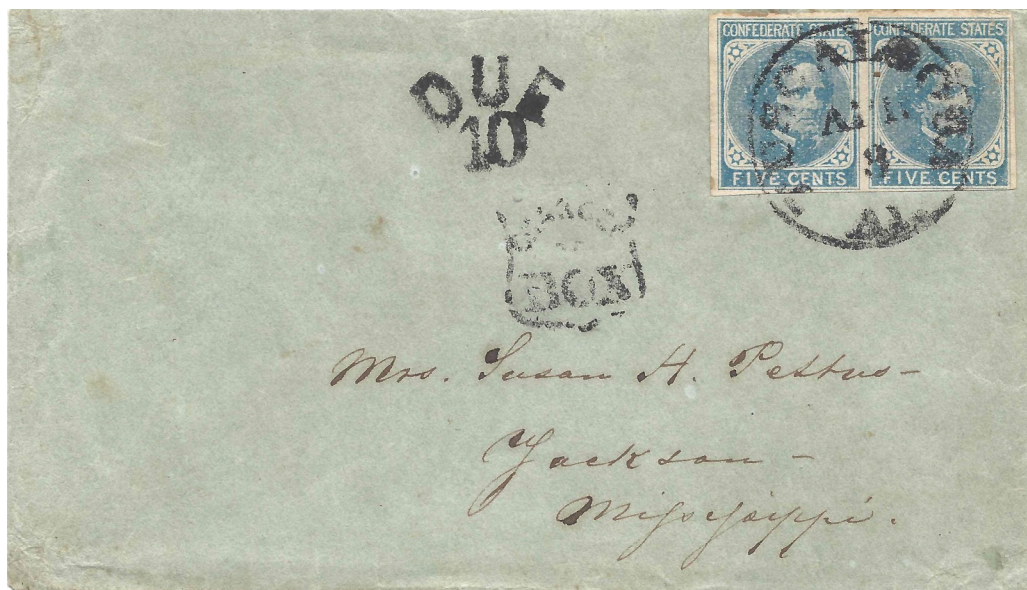 CONFEDERATE STATES
FIVE CENTS
CONFEDERATE STATES
FIVE CENTS
TUSCALOOSA
DUE
10
BOX
Mrs. Susan H. Pettus-
Jackson-
Mississippi.